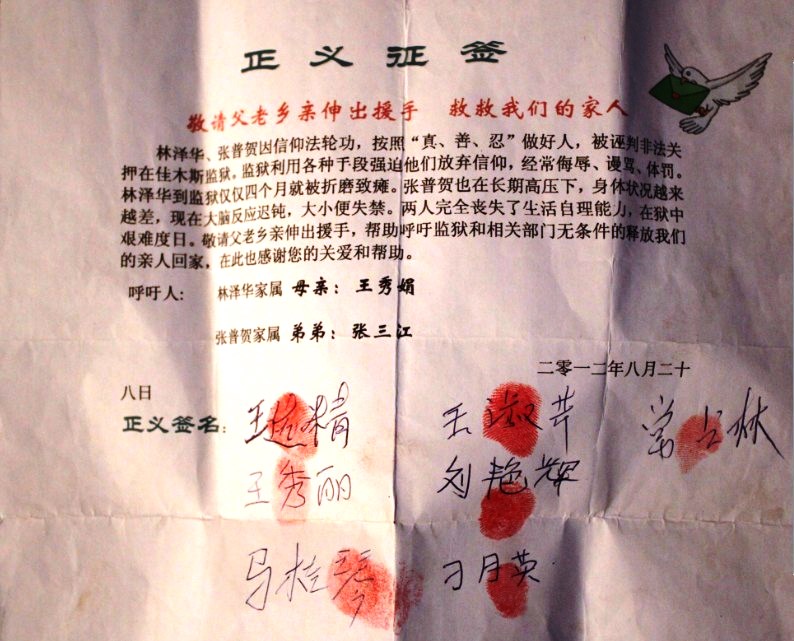 正义征签
敬请父老乡亲伸出援手 救救我们的家人
林泽华、张普贺因信仰法轮功，按照“真、善、忍”做好人，被诬判非法关
押在佳木斯监狱，监狱利用各种手段强迫他们放弃信仰，经常侮辱、谩骂、体罚。
林泽华到监狱仅仅四个月就被折磨致瘫。张普贺也在长期高压下，身体状况越来
越差，现在大脑反应迟钝，大小便失禁。两人完全丧失了生活自理能力，在狱中
艰难度日。敬请父老乡亲伸出援手，帮助呼吁监狱和相关部门无条件的释放我们
的亲人回家，在此也感谢您的关爱和帮助。
呼吁人: 林泽华家属 母亲: 王秀娟
张普贺家属 弟弟: 张三江
二零一二年八月二十
八日
正义签名: 王 王淑芹
王秀丽 刘艳辉
马桂琴 刁月英